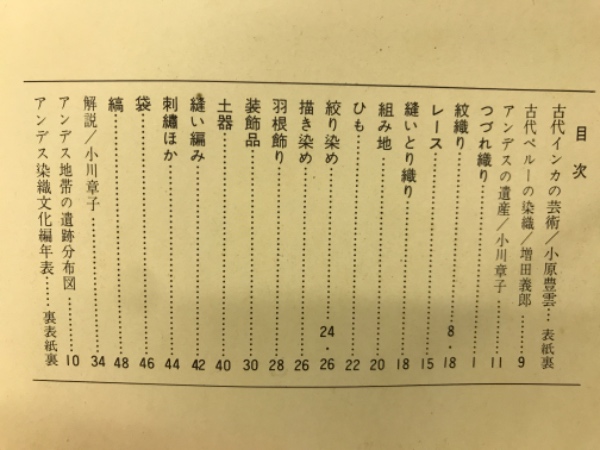 目次
古代インカの芸術/小原豊雲‥表紙裏
古代ペルーの染織/増田義郎……9
アンデスの遺産/小川章子……11
つづれ織り……1
紋織り……8・18
レース……15
縫いとり織り……18
組み地……20
ひも……22
絞り染め……24・26
描き染め……26
羽根飾り……28
装飾品……30
土器……40
縫い編み……42
刺繡ほか……44
袋……46
縞……48
解説/小川章子……34
アンデス地帯の遺跡分布図……10
アンデス染織文化編年表……裏表紙裏